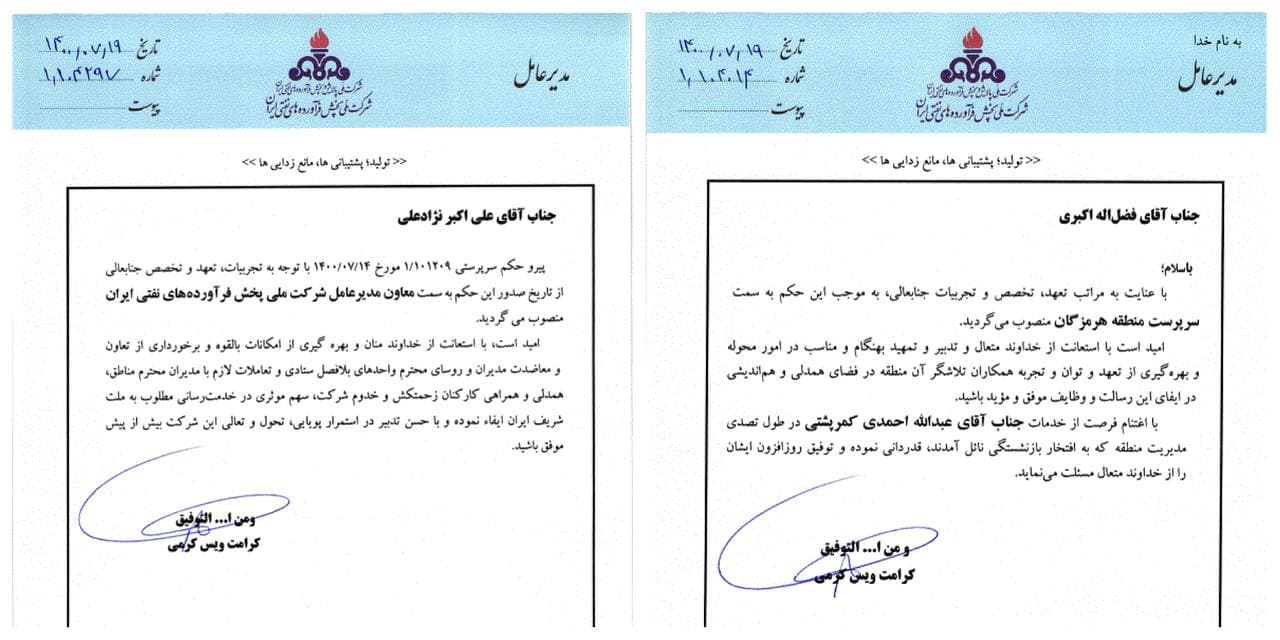 به نام خدا
مدیرعامل
شرکت ملی پالایش و پخش فرآورده‌های نفتی ایران
شرکت ملی پخش فرآورده های نفتی ایران
تاریخ ۱۴۰۰/۰۷/۱۹
شماره ۱/۱۰۴۰۱۴
پیوست
<< تولید؛ پشتیبانی ها، مانع زدایی ها >>
جناب آقای فضل‌اله اکبری
باسلام؛
با عنایت به مراتب تعهد، تخصص و تجربیات جنابعالی، به موجب این حکم به سمت
سرپرست منطقه هرمزگان منصوب می‌گردید.
امید است با استعانت از خداوند متعال و تدبیر و تمهید بهنگام و مناسب در امور محوله
و بهره‌گیری از تعهد و توان و تجربه همکاران تلاشگر آن منطقه در فضای همدلی و هم‌اندیشی
در ایفای این رسالت و وظایف موفق و مؤید باشید.
با اغتنام فرصت از خدمات جناب آقای عبدالله احمدی کمرپشتی در طول تصدی
مدیریت منطقه که به افتخار بازنشستگی نائل آمدند، قدردانی نموده و توفیق روزافزون ایشان
را از خداوند متعال مسئلت می‌نماید.
و من ا... التوفیق
کرامت ویس کرمی
مدیرعامل
شرکت ملی پالایش و پخش فرآورده‌های نفتی ایران
شرکت ملی پخش فرآورده های نفتی ایران
تاریخ ۱۴۰۰/۰۷/۱۹
شماره ۱/۱۰۴۲۹۷
پیوست
<< تولید؛ پشتیبانی ها، مانع زدایی ها >>
جناب آقای علی اکبر نژادعلی
پیرو حکم سرپرستی ۱/۱۰۱۲۰۹ مورخ ۱۴۰۰/۰۷/۱۴ با توجه به تجربیات، تعهد و تخصص جنابعالی
از تاریخ صدور این حکم به سمت معاون مدیرعامل شرکت ملی پخش فرآورده‌های نفتی ایران
منصوب می گردید.
امید است، با استعانت از خداوند منان و بهره گیری از امکانات بالقوه و برخورداری از تعاون
و معاضدت مدیران و روسای محترم واحدهای بلافصل ستادی و تعاملات لازم با مدیران محترم مناطق،
همدلی و همراهی کارکنان زحمتکش و خدوم شرکت، سهم موثری در خدمت‌رسانی مطلوب به ملت
شریف ایران ایفاء نموده و با حسن تدبیر در استمرار پویایی، تحول و تعالی این شرکت بیش از پیش
موفق باشید.
ومن ا... التوفیق
کرامت ویس کرمی